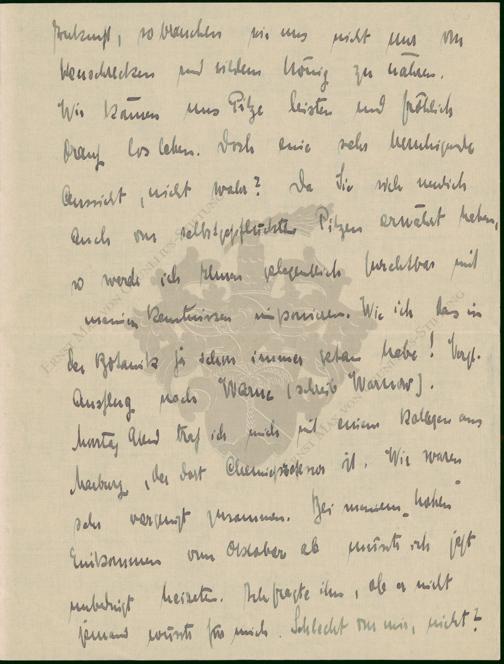 Zukunft, so brauchen wir uns nicht nur von
Heuschrecken und wildem Honig zu nähren.
Wir können uns Pilze leisten und fröhlich
drauf los leben. Doch eine sehr beruhigende
Aussicht, nicht wahr? Da Sie sich neulich
auch von selbstgepflückten Pilzen ernährt haben,
so werde ich Ihnen gelegentlich furchtbar mit
meinen Kenntnissen imponieren. Wie ich das in
der Botanik ja schon immer getan habe! Vergl.
Ausflug nach Warne (schreib Warnow).
Montag Abend traf ich mich mit einem Kollegen aus
Marburg, der dort Chemieprofessor ist. Wir waren
sehr vergnügt zusammen. Bei meinem "hohen"
Einkommen vom Oktober ab müsste ich jetzt
unbedingt heiraten. Ich fragte ihn, ob er nicht
jemand wüsste für mich. Schlecht von mir, nicht?
ERNST MAX VON GRUNELIUS-STIFTUNG
ERNST MAX VON GRUNELIUS-STIFTUNG